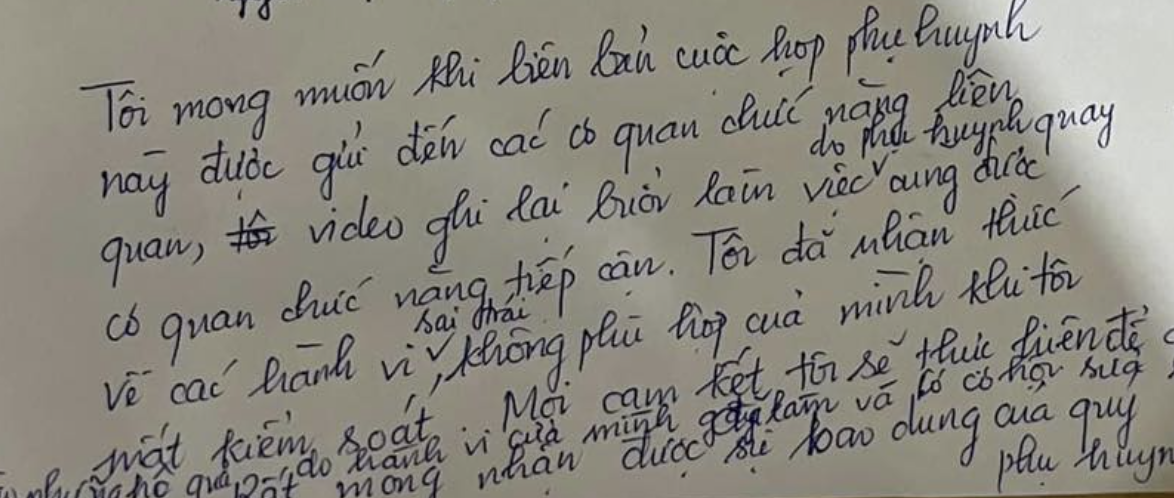 Tôi mong muốn khi biên bản cuộc họp phụ huynh
này được gửi đến các cơ quan chức năng liên
do phụ huynh quay
quan, tôi video ghi lại buổi làm việc cũng được
cơ quan chức năng tiếp cận. Tôi đã nhận thức
sai trái
về các hành vi, không phù hợp của mình khi tôi
mất kiểm soát. Mọi cam kết tôi sẽ thực hiện để
do hành vi của mình gây làm và có cơ hội sửa
mong nhận được sự bao dung của quý
phụ huyn